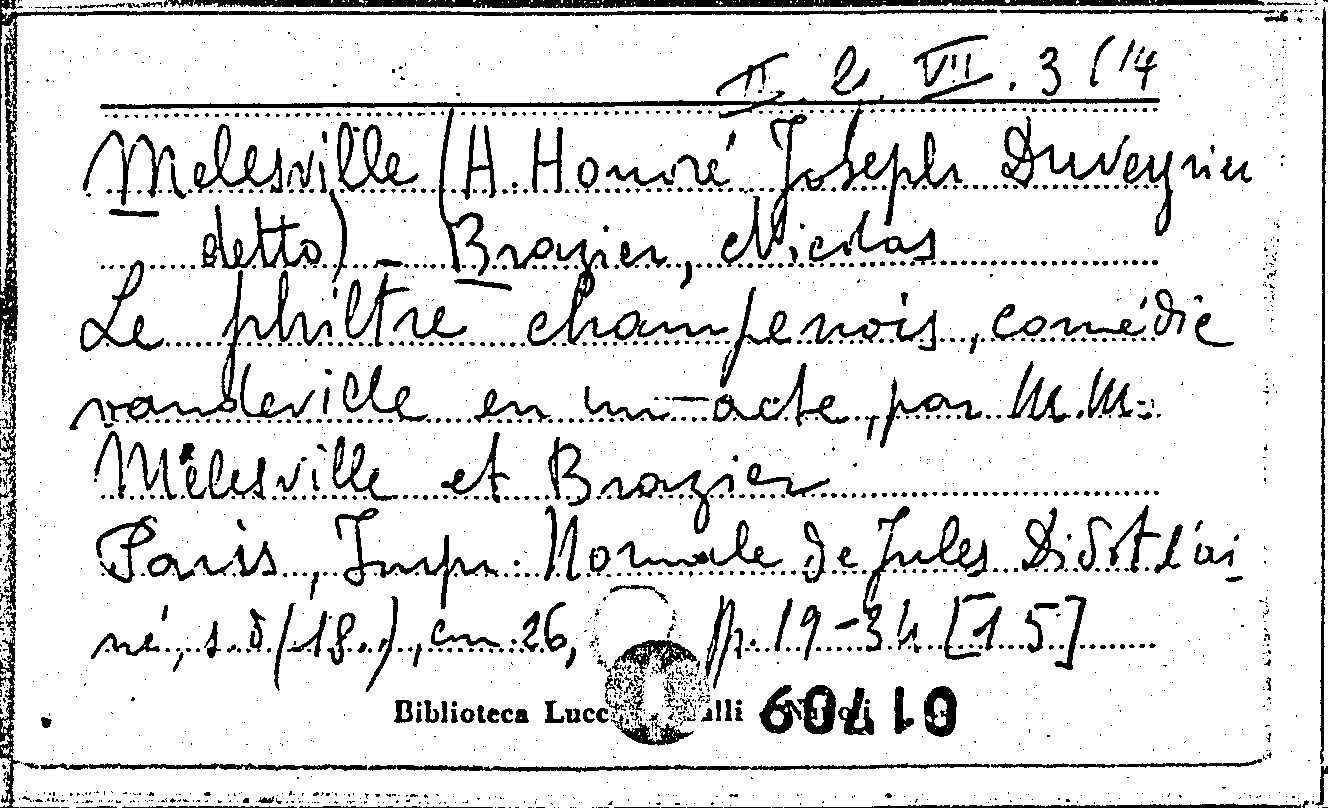 II. b. VII. 3 (14
Melesville (A. Honoré Joseph Duveyrier
detto) - Brazier, Nicolas
Le philtre champenois, comédie
vaudeville en un acte, par M.M.
Mélesville et Brazier
Paris, Impr. Normale de Jules Didot l'ai-
né, s.d (18..), cm. 26, pp. 19-34 [15]
Biblioteca Lucc alli